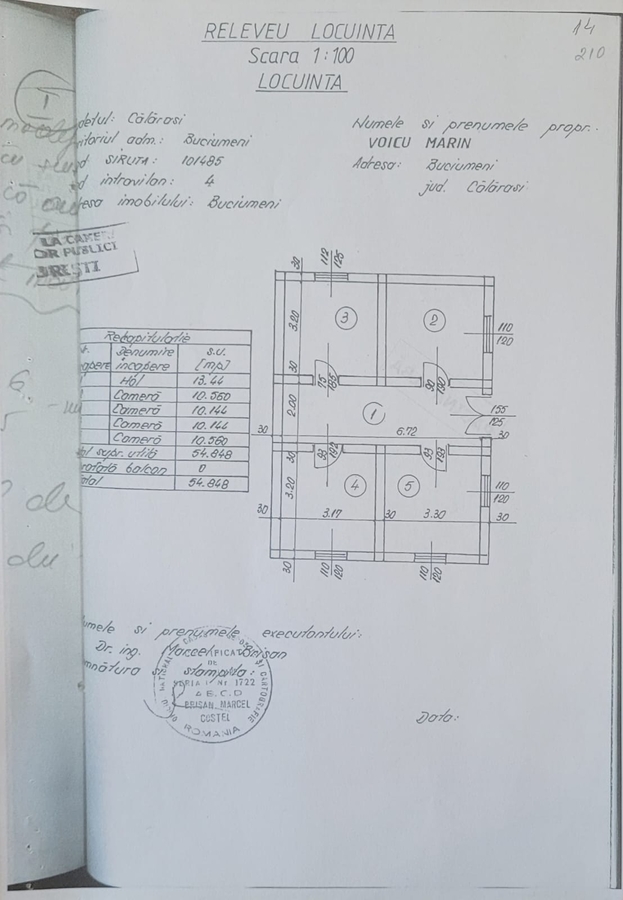 14
210
RELEVEU LOCUINTA
Scara 1:100
LOCUINTA
I
detul: Călărasi
itoriul adm.: Buciumeni
d SIRUTA: 101485
d intravilan: 4
esa imobilului: Buciumeni
Numele si prenumele propr.
VOICU MARIN
Adresa: Buciumeni
jud. Călărasi
LA CAMER
OR PUBLICI
REȘTI
Recapitulatie
Denumire incapere S.U. [mp]
Hol 13.44
Cameră 10.560
Cameră 10.144
Cameră 10.144
Cameră 10.560
al supr. utilă 54.848
balcon 0
tal 54.848
30 112 125
3.20 3 2 110 100
30 75 195 90 190
2.00 1 155 125
30 6.72 30
30 93 192 93 193
3.20 4 5 110 120
3.17 30 3.30 30
30 110 120 110 120
umele si prenumele executantului:
Dr. ing. Marcel Brisan
mnătura stampila:
SERIA Nr. 1722
A.E.C.D
BRISAN. MARCEL
COSTEL
ROMANIA
Data:
de
du